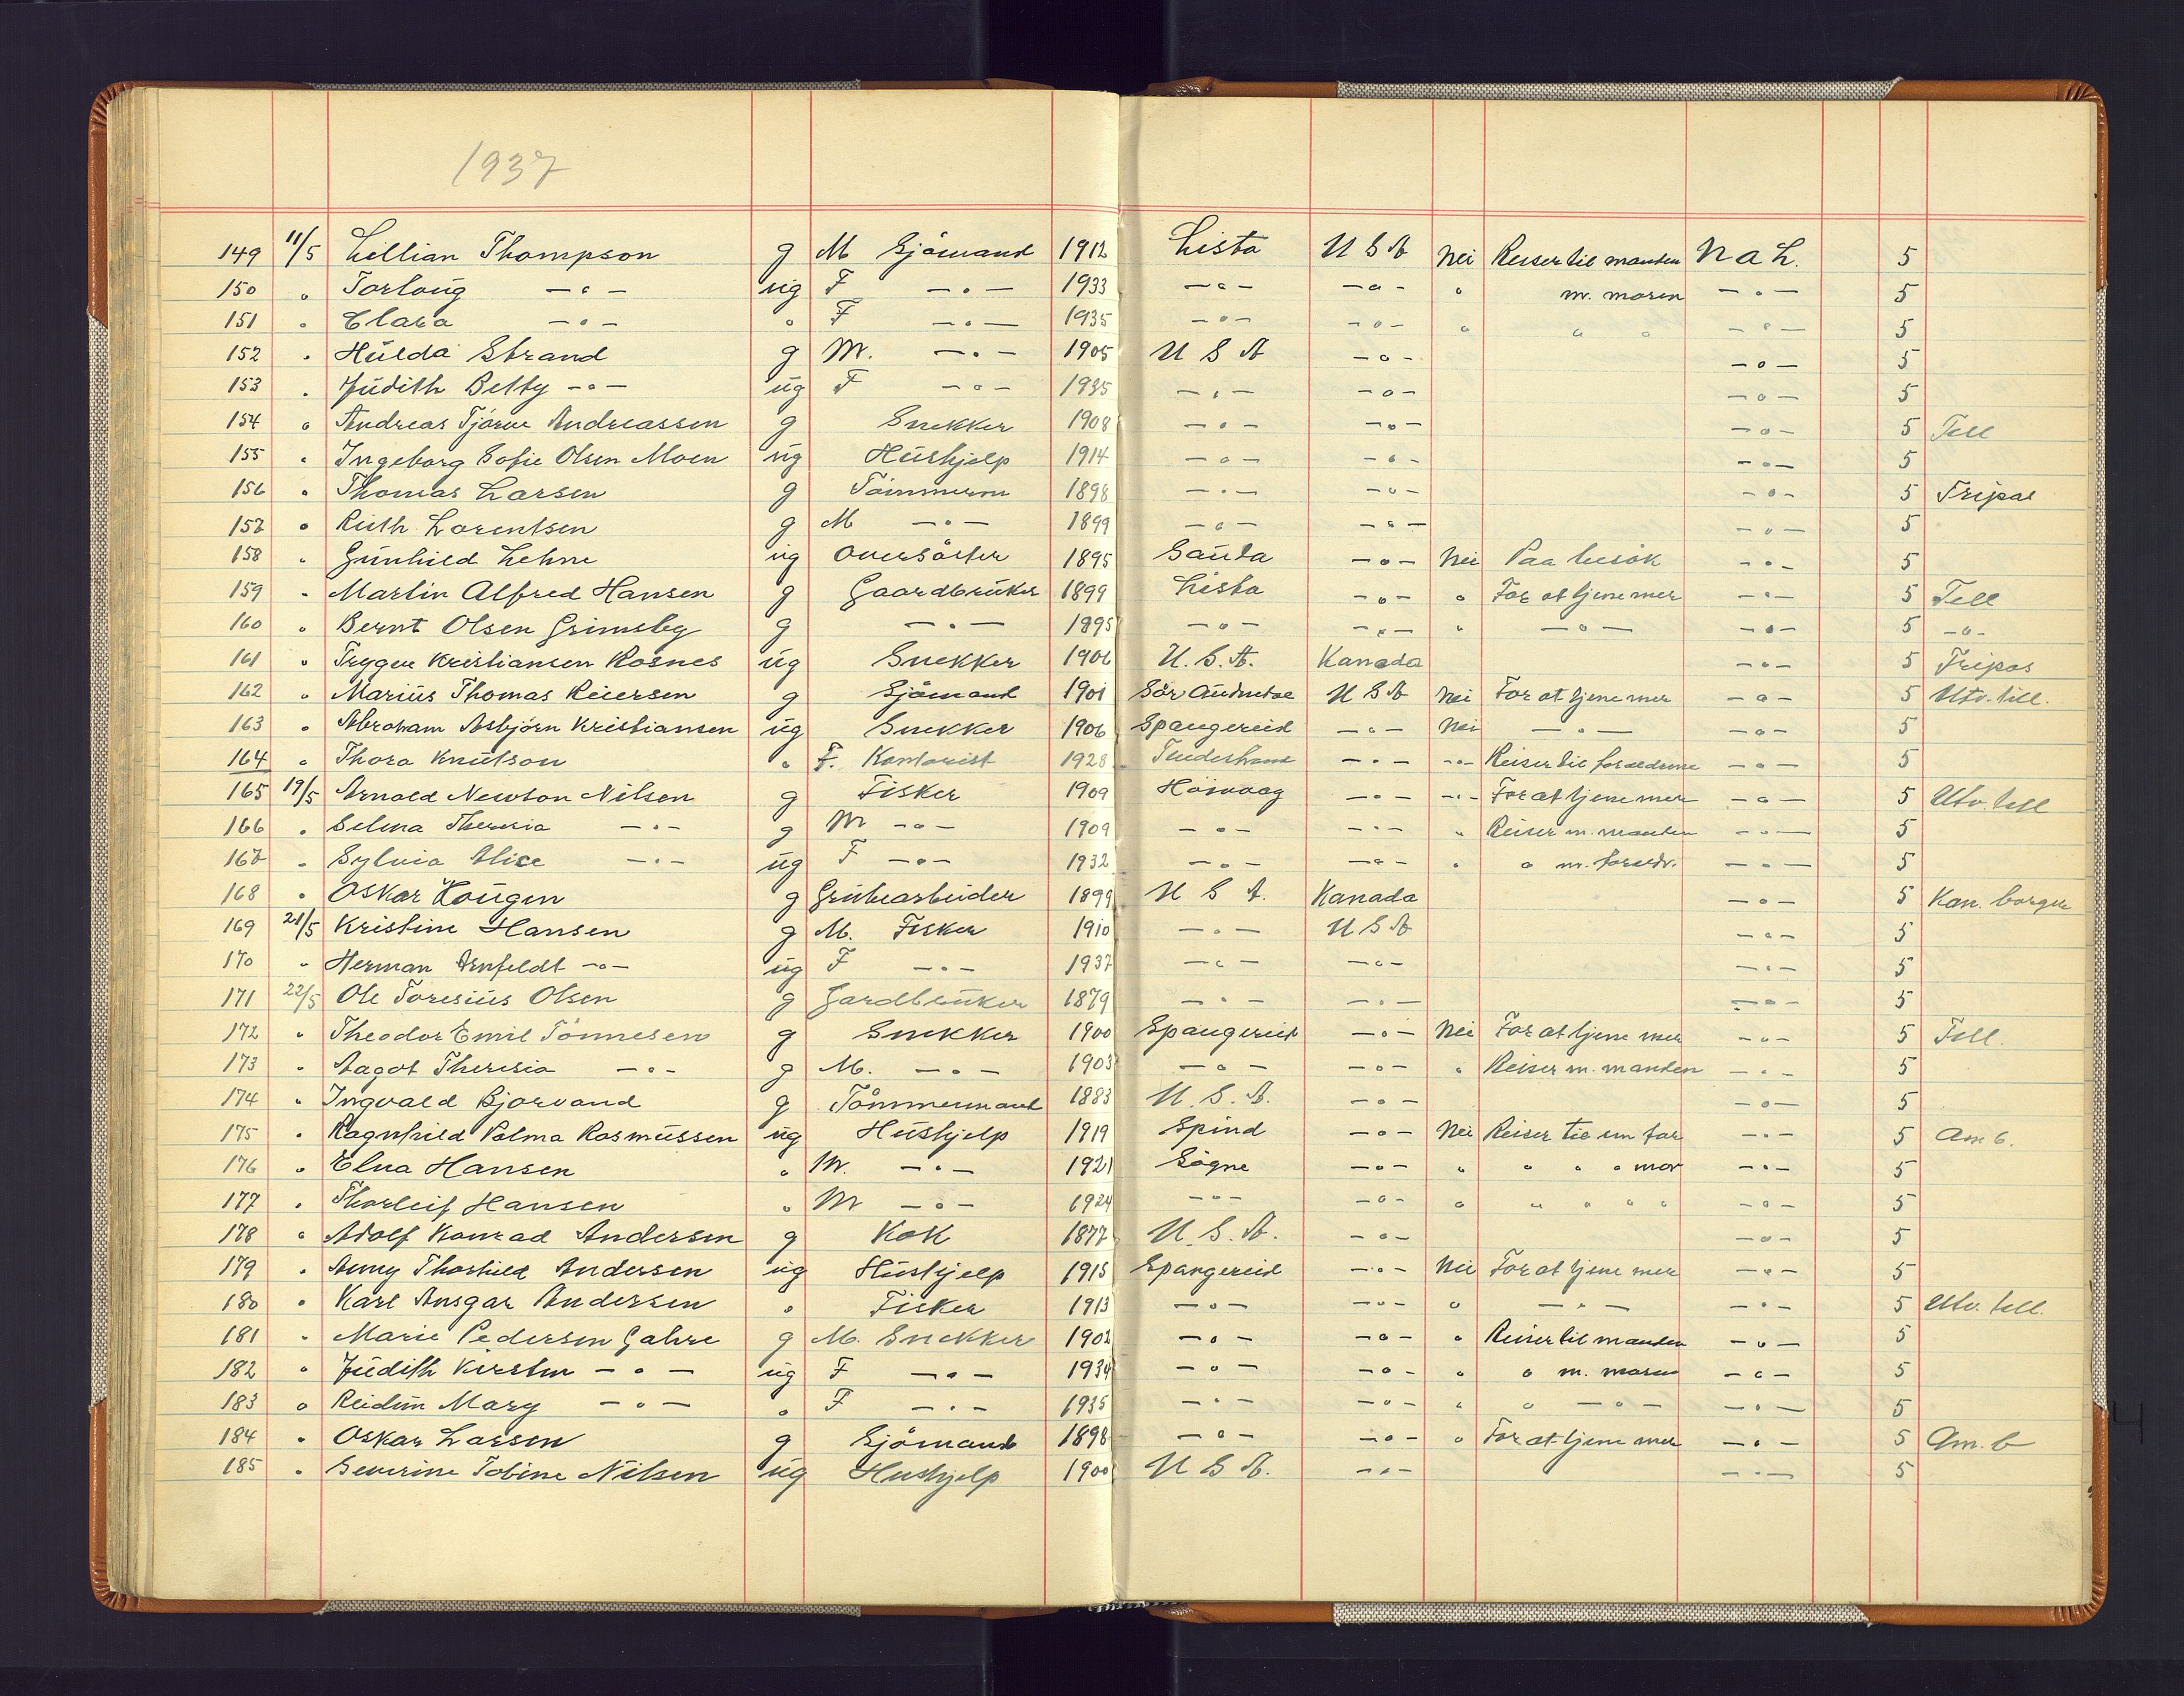 1937
149 11/5 Lillian Thompson g M Sjömand 1912 Lista U S A Nei Reiser til manden N a L. 5
150 " Torlaug —"— ug F —"— 1933 —"— —"— " m. moren —"— 5
151 " Clara —"— " F —"— 1935 —"— —"— " " " —"— 5
152 " Hulda Strand g M. —"— 1905 U S A —"— —"— 5
153 " Judith Betty —"— ug F —"— 1935 —"— —"— —"— 5
154 " Andreas Tjörve Andreassen g Snekker 1908 —"— —"— —"— 5 Till
155 " Ingeborg Sofie Olsen Moen ug Hushjelp 1914 —"— —"— —"— 5
156 " Thomas Larsen g Tömmerm 1898 —"— —"— —"— 5 Tripas
157 " Ruth Lorentsen g M —"— 1899 —"— —"— —"— 5
158 " Gunhild Lehne ug Oversöster 1895 Sauda —"— Nei Paa besök —"— 5
159 " Martin Alfred Hansen g Gaardbruker 1899 Lista —"— " For at tjene mer —"— 5 Till
160 " Bernt Olsen Grimsby g —"— 1895 —"— —"— " —"— —"— 5 —"—
161 " Trygve Kristiansen Rosnes ug Snekker 1906 U.S.A. Kanada —"— 5 Tripas
162 " Marius Thomas Reiersen g Sjömand 1901 Sör Audnedal U S A Nei For at tjene mer —"— 5 Utv. till.
163 " Abraham Asbjörn Kristiansen ug Snekker 1906 Spangereid —"— Nei —"— —"— 5
164 " Thora Knutson " F. Kontorist 1928 —"— —"— Reiser til foreldrene —"— 5
165 19/5 Arnold Newton Nilsen g Fisker 1909 Hövaag —"— —"— For at tjene mer —"— 5 Utv. till
166 " Selma Theresia —"— g M —"— 1909 —"— —"— " Reiser m. manden —"— 5
167 " Sylvia Alice —"— ug F —"— 1932 —"— —"— " " m. foreldr. —"— 5
168 " Oskar Haugen g Grubearbeider 1899 U S A. Kanada —"— 5 Kan. borger
169 21/5 Kristine Hansen g M. Fisker 1910 —"— U S A —"— 5
170 " Herman Arnfeldt —"— ug F —"— 1937 —"— —"— —"— 5
171 22/5 Ole Toresius Olsen g Gardbruker 1879 —"— —"— —"— 5
172 " Theodor Emil Tönnesen g Snekker 1900 Spangereid —"— Nei For at tjene mer —"— 5 Till.
173 " Aagot Theresia —"— g M. —"— 1903 —"— —"— " Reiser m. manden —"— 5
174 " Ingvald Bjorvand g Tömmermand 1883 U.S.A. —"— —"— 5
175 " Ragnhild Palma Rasmussen ug Hushjelp 1919 Spind —"— Nei Reiser til sin far —"— 5 Am b.
176 " Elna Hansen " M. —"— 1921 Sögne —"— " " " " mor —"— 5
177 " Thorleif Hansen " M —"— 1924 —"— —"— " " " " " —"— 5
178 " Adolf Konrad Andersen g Kok 1877 U.S.A. —"— —"— 5
179 " Anny Thorhild Andersen ug Hushjelp 1915 Spangereid —"— Nei For at tjene mer —"— 5
180 " Karl Ansgar Andersen " Fisker 1913 —"— —"— " —"— —"— 5 Utv. till.
181 " Marie Pedersen Gahre g M. Snekker 1902 —"— —"— " Reiser til manden —"— 5
182 " Judith Kirsten —"— ug F —"— 1934 —"— —"— " " m. moren —"— 5
183 " Reidun Mary —"— " F —"— 1935 —"— —"— " " —"— —"— 5
184 " Oskar Larsen g Sjömand 1898 —"— —"— " For at tjene mer —"— 5 Am. b
185 " Severine Tobine Nilsen ug Hushjelp 1900 U S A. —"— —"— 5